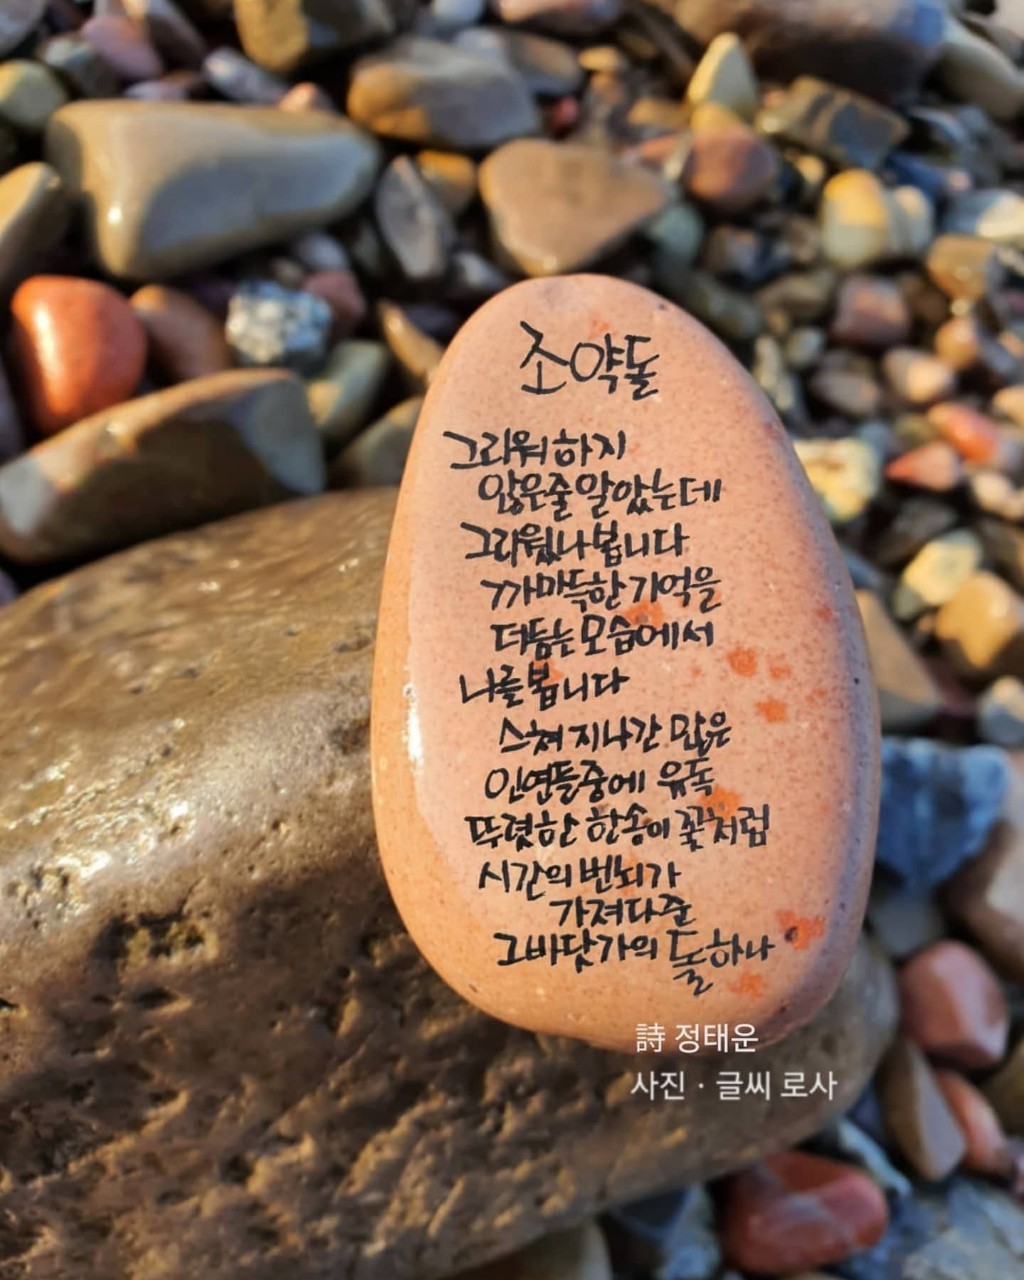 조약돌
그리워하지
않은줄알았는데
그리웠나봅니다
까마득한 기억을
더듬는 모습에서
나를봅니다
스쳐 지나간 많은
인연들중에 유독
뚜렷한 한송이 꽃처럼
시간의 번뇌가
가져다준
그바닷가의 돌하나
詩 정태운
사진 · 글씨 로사